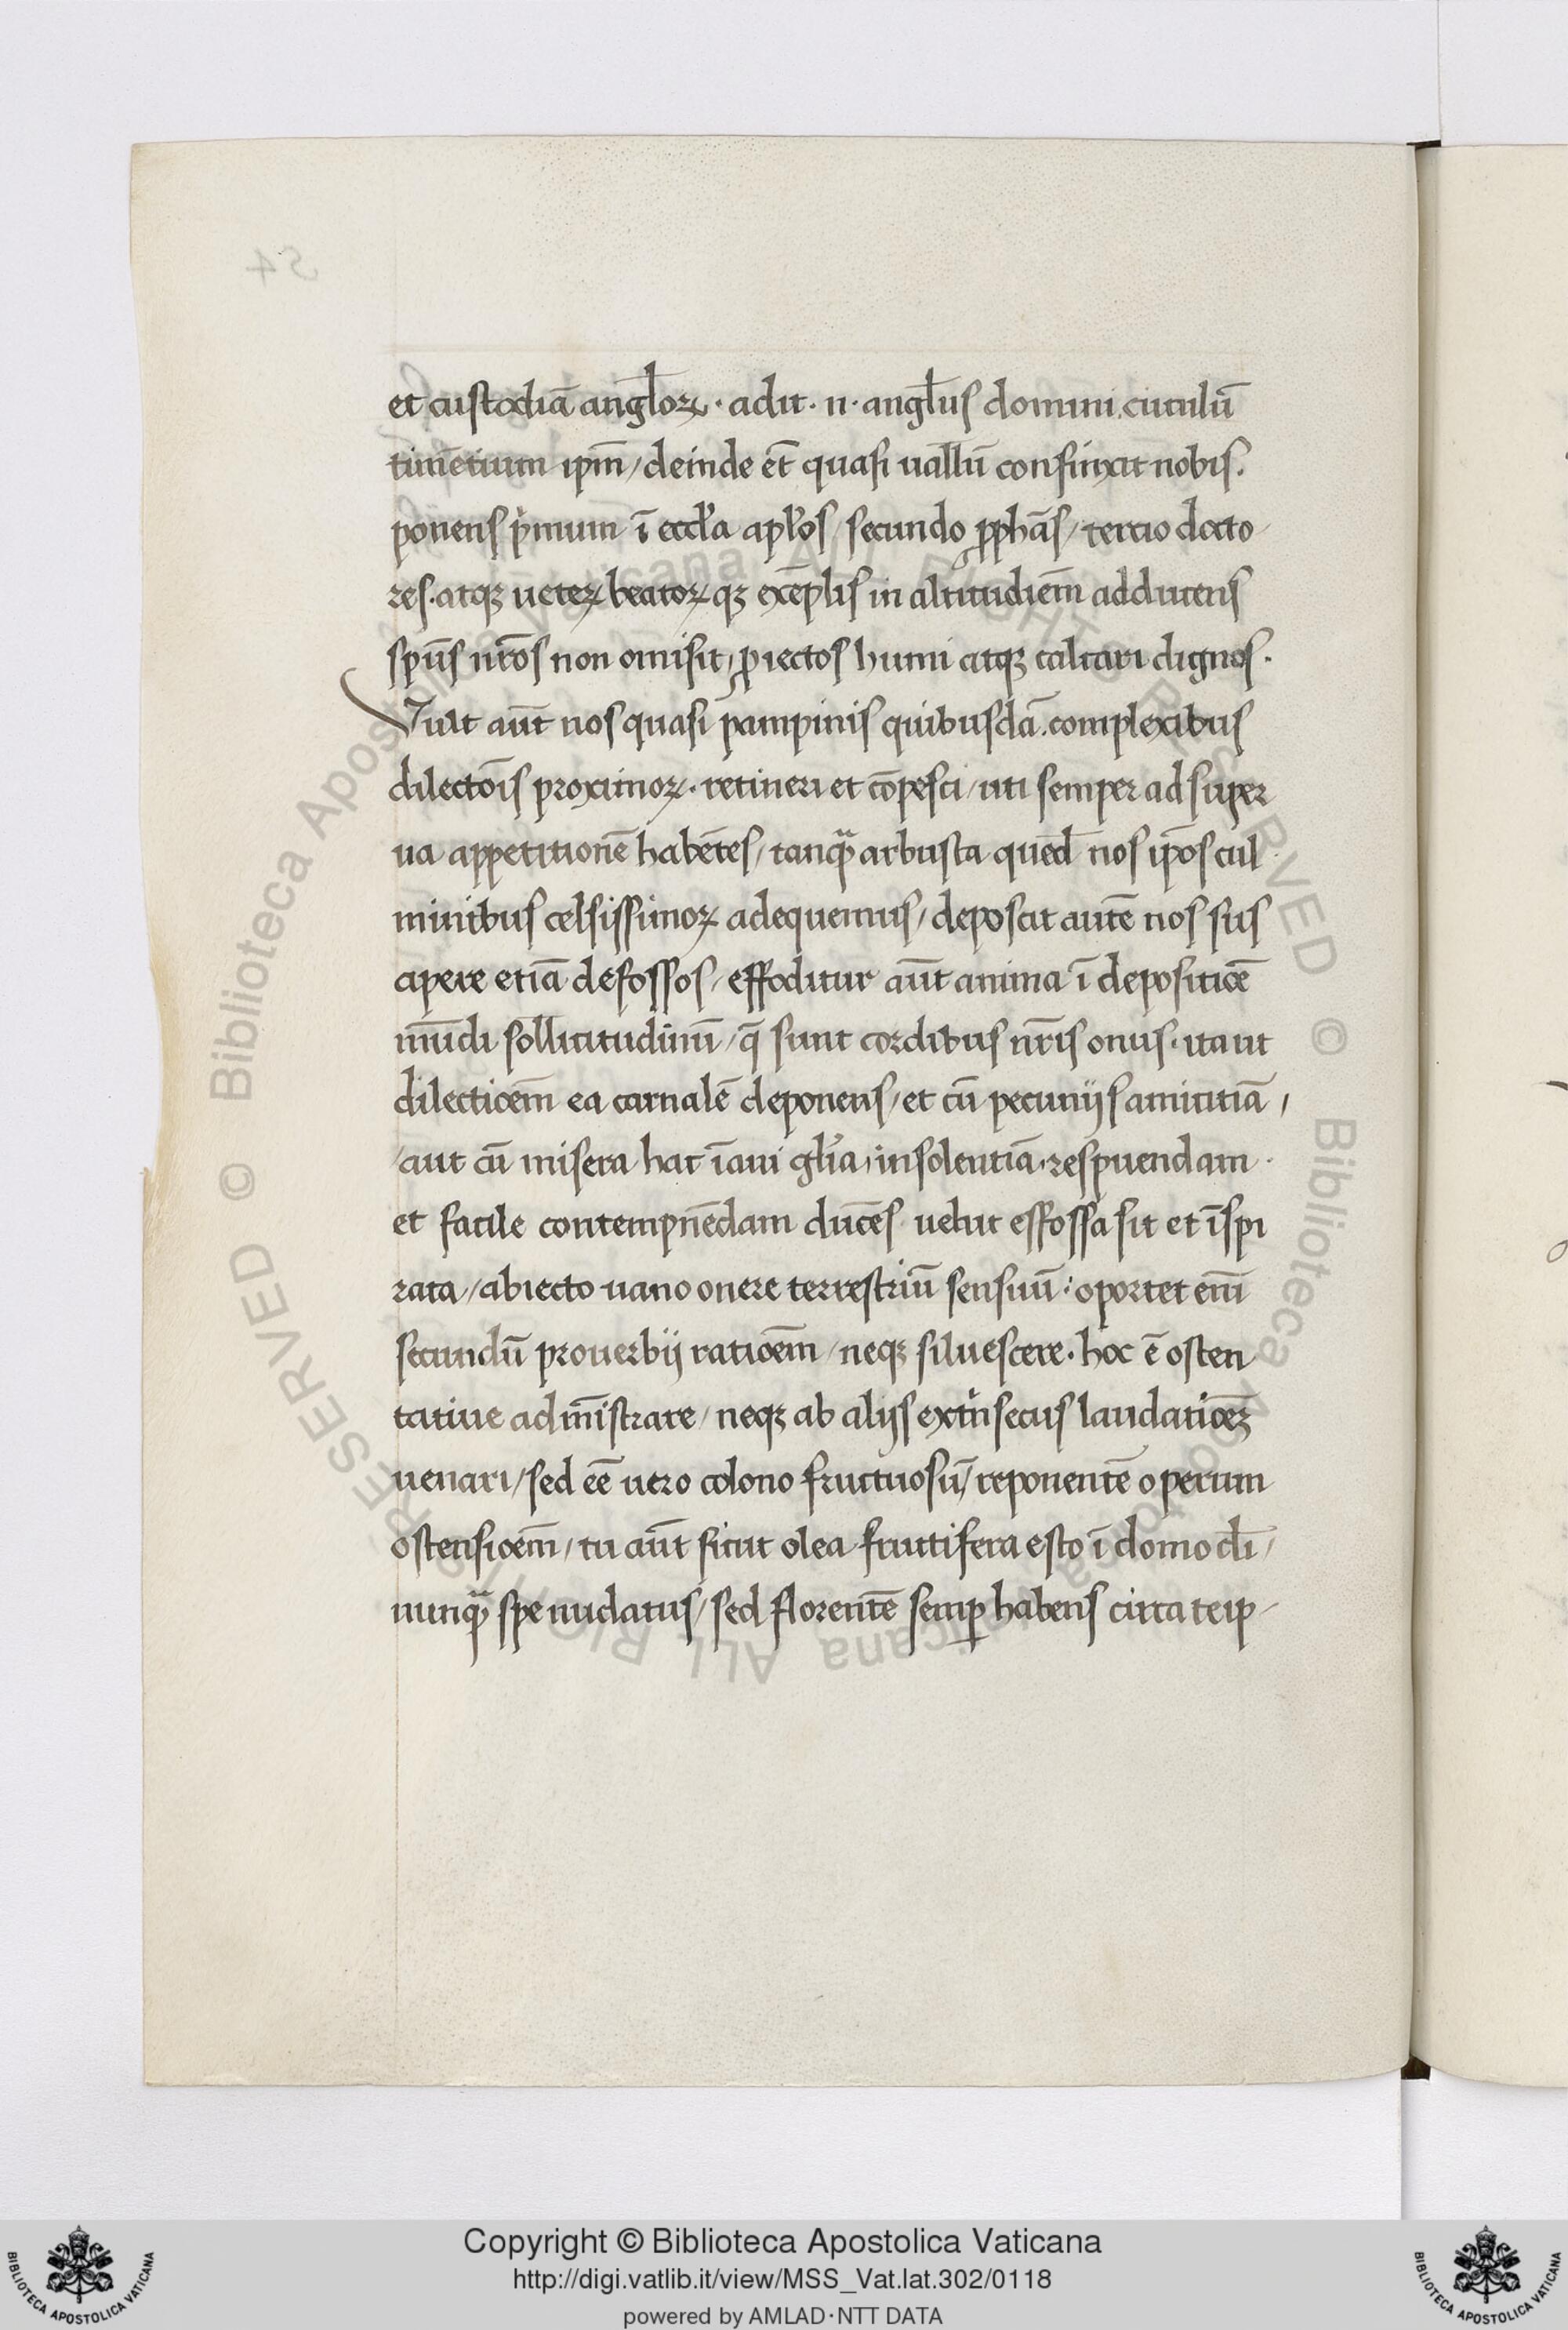 et custodiā angl̄oꝝ · adit · n · angl̄us domini circulū
timētium ipm̄ / deinde et̄ quasi uallū confinxit nobis.
ponens p̓mum ī eccl̓a apl̓os / secundo ꝓphās / tercio docto
res · atqꝫ ueteꝝ beatoꝝ qꝫ exēplis in altitudiem̄ adducens
spūs nr̄os non omisit / ꝓiectos humi atqꝫ calcari dignos ·
Vult aūt nos quasi pampinis quibusdā . complexibus
dilectōis proximoꝝ · retineri et cōpesci / uti semper ad super
ua appetitionē habētes / tanqᷓ arbusta qued̄ nos ip̄os cul
minibus celsissimoꝝ adequemus / deposcit autē nos sus
apere etiā defossos / effoditur aūt anima ī depositiōe
mūdi sollicitudinū / q̄ sunt cordibus nr̄is onus · ita ut
dilectioem̄ ea carnalē deponens / et cū pecunijs amicitiā /
/ aut cū misera hac īani gl̓ia / insolentiā · respuendam ·
et facile contempnēdam ducēs uelut effossa sit et īspi
rata / abiecto uano onere terrestriū sensuū : oportet enī
secundū prouerbij ratioem̄ / neqꝫ siluescere · hoc ē osten
tatiue adm̄istrare / neqꝫ ab alijs ext̓nsecus laudatiōeꝫ
uenari / sed eē uero colono fructuosū / reponentē operum
ostensioem̄ / tu aūt sicut olea fructifera esto ī domo dī /
nunqᷓ spe nudatus / sed florentē semꝑ habens circa teip-
54
Copyright © Biblioteca Apostolica Vaticana
http://digi.vatlib.it/view/MSS_Vat.lat.302/0118
powered by AMLAD·NTT DATA